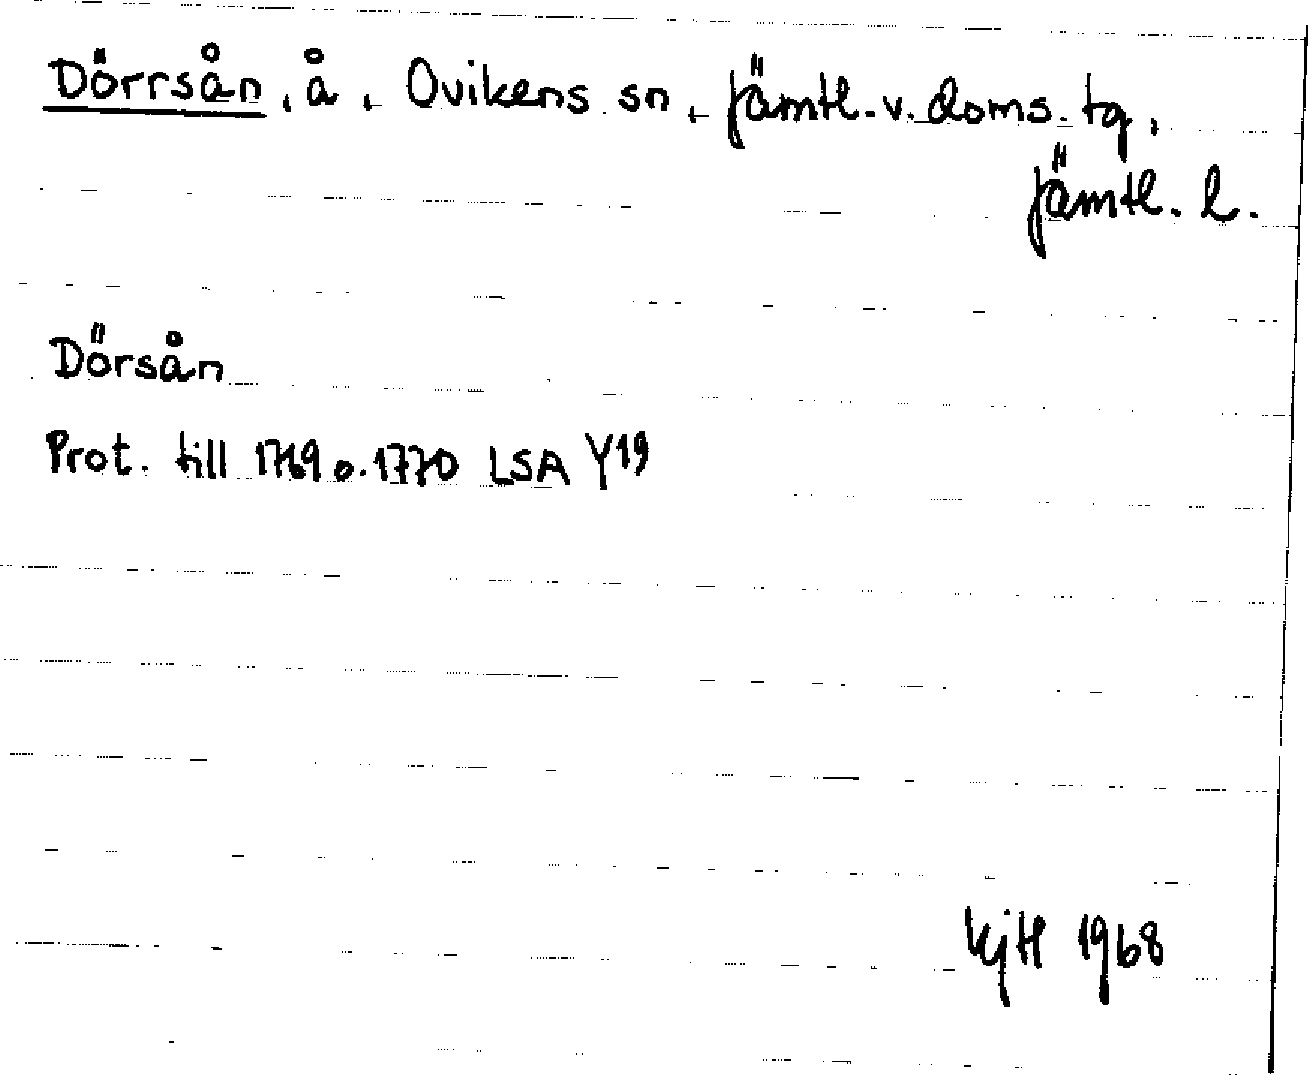 Dörrsån, å, Ovikens sn, Jämtl. v. doms. tg,
Jämtl. l.
Dörsån
Prot. till 1769 o. 1770 LSA Y19
KjH 1968